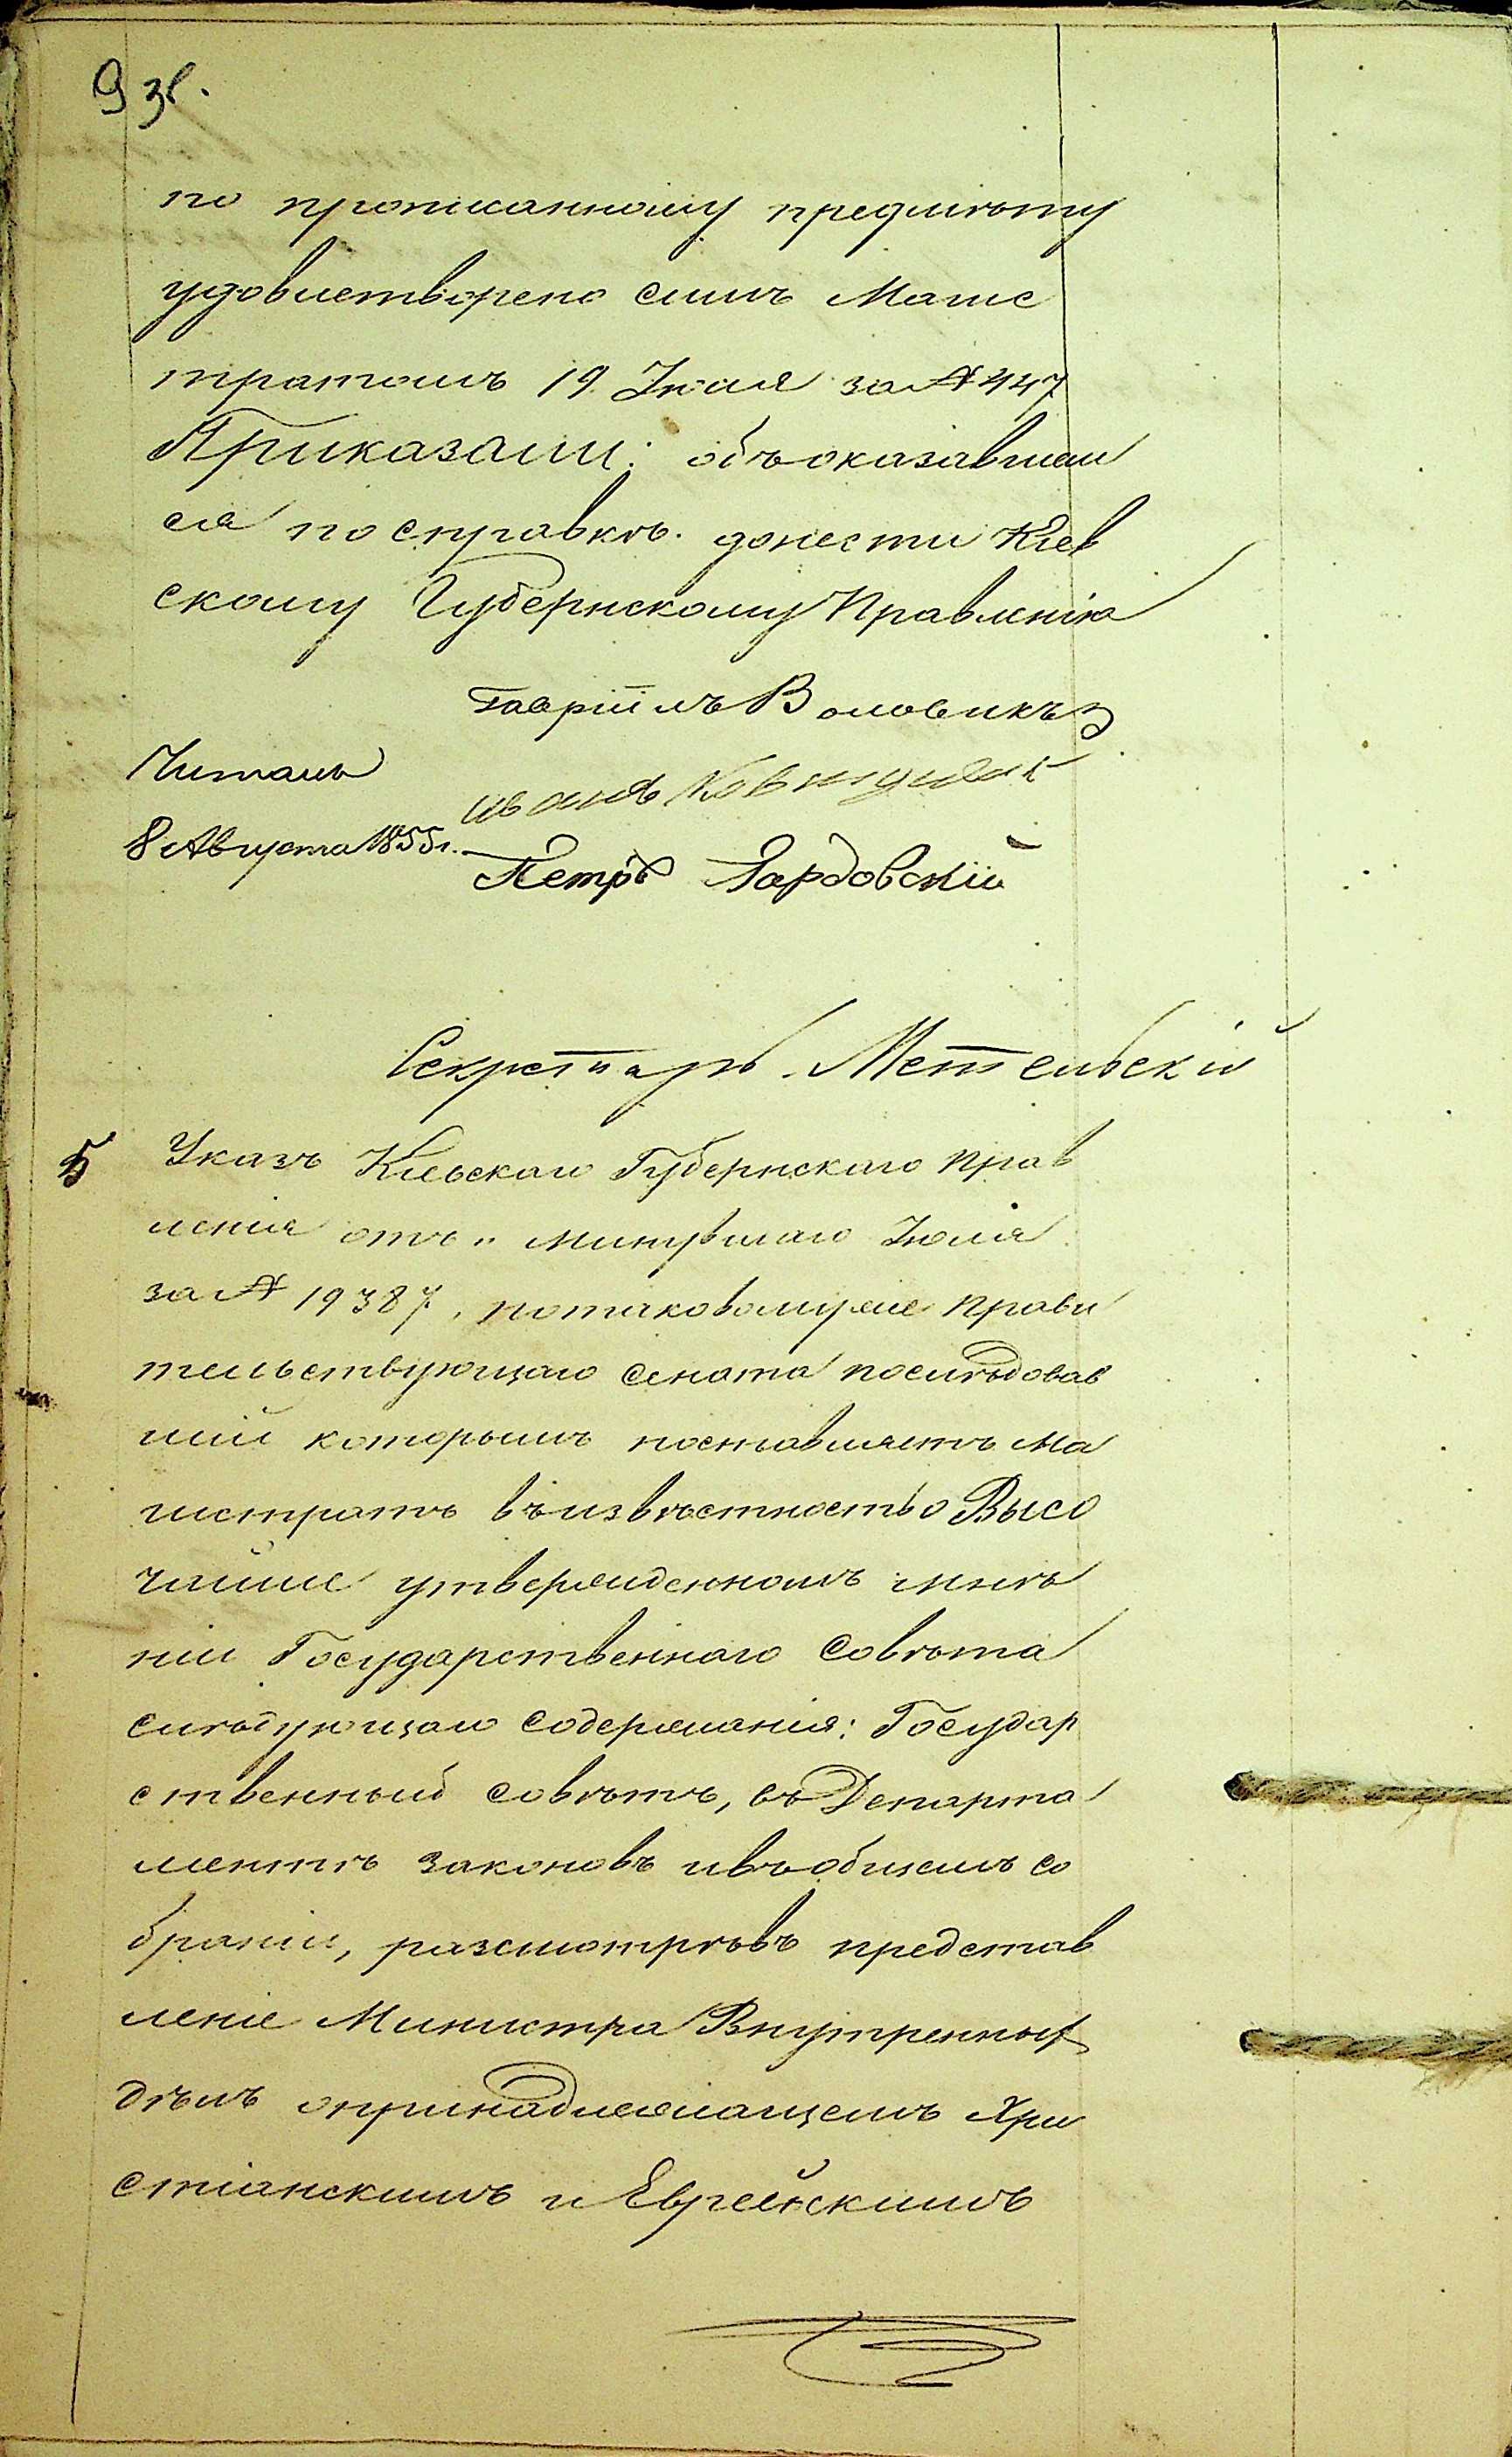 по прописанному предмѣту
удовлетворено симъ Магис
тратомъ 19 Іюля за № 447
Приказали: объ оказавшем
ся по справкѣ донести Кіев
скому Губернскому Правленію
Гавріилъ Воловикъ
Читалъ
Иванъ
8 Августа 1855 г.
Петръ
Секретарь Метельскій
5 Указъ Кіевскаго Губернскаго Прав
ленія отъ „ минувшаго Іюля
за № 19387, по таковому же Прави
тельствующаго Сената послѣдовав
шій которымъ поставляетъ Ма
гистратъ въ извѣстность о Высо
чайше утвержденномъ мнѣ
ніи Государственнаго Совѣта
слѣдующаго содержанія: Государ
ственный Совѣтъ, въ Департа
ментѣ Законовъ и въ общемъ со
браніи, разсмотрѣвъ представ
леніе Министра Внутреннихъ
дѣлъ о принадлежащемъ Хри
стіанскимъ и Еврейскимъ